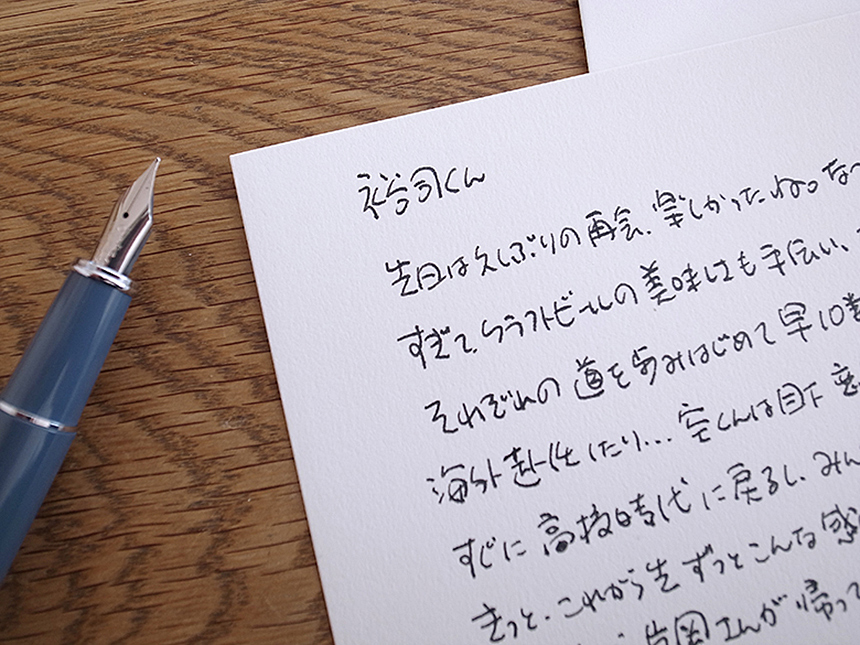 裕司くん
先日は久しぶりの再会、楽しかったね。なつ
すぎて、クラフトビールの美味しさも手伝い、
それぞれの道を歩みはじめて早10数
海外赴任したり... 宅くんは目下
すぐに高校時代に戻るし、みん
きっと、これから先ずっとこんな感
片岡さんが帰って